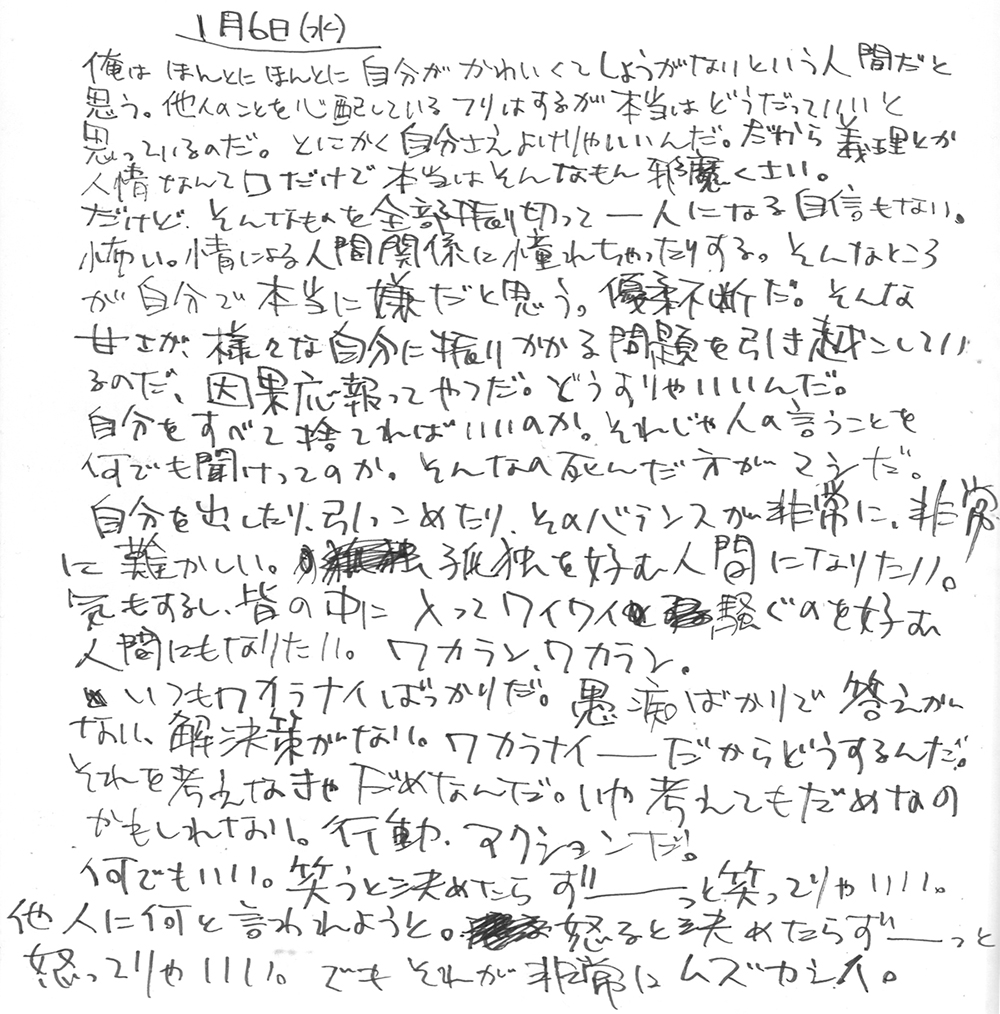 1月6日(水)
俺は ほんとに ほんとに 自分が かわいくて しょうがないという人間だと
思う。他人のことを心配している フリはするが 本当は どうだっていいと
思っているのだ。とにかく自分さえよけりゃいいんだ。だから 義理とか
人情なんて口だけで 本当は そんなもん 邪魔くさい。
だけど、そんなものを 全部振り切って 一人になる自信もない。
怖い。情による人間関係に憧れちゃったりする。そんなところ
が自分で本当に嫌だと思う。優柔不断だ。そんな
甘さが、様々な自分に振りかかる問題を引き越こしてい
るのだ、因果応報ってやつだ。どうすりゃいいんだ。
自分をすべて捨てればいいのか。それじゃ人の言うことを
何でも聞けってのか。そんなの死んだ方がマシだ。
自分を出したり、引っこめたり、そのバランスが非常に、非常
に難かしい。孤独を好む人間になりたい。
気もするし、皆の中に入ってワイワイと騒ぐのを好む
人間にもなりたい。ワカラン、ワカラン。
いつもワカラナイばっかりだ。愚痴ばかりで 答えが
ない、解決策がない。ワカラナイ――だからどうするんだ。
それを考えなきゃだめなんだ。いや考えてもだめなの
かもしれない。行動、アクションだ。
何でもいい。笑うと決めたら ず――っと笑ってりゃいい。
他人に何と言われようと。怒ると決めたらず――っと
怒ってりゃいい。でもそれが非常にムズカシイ。